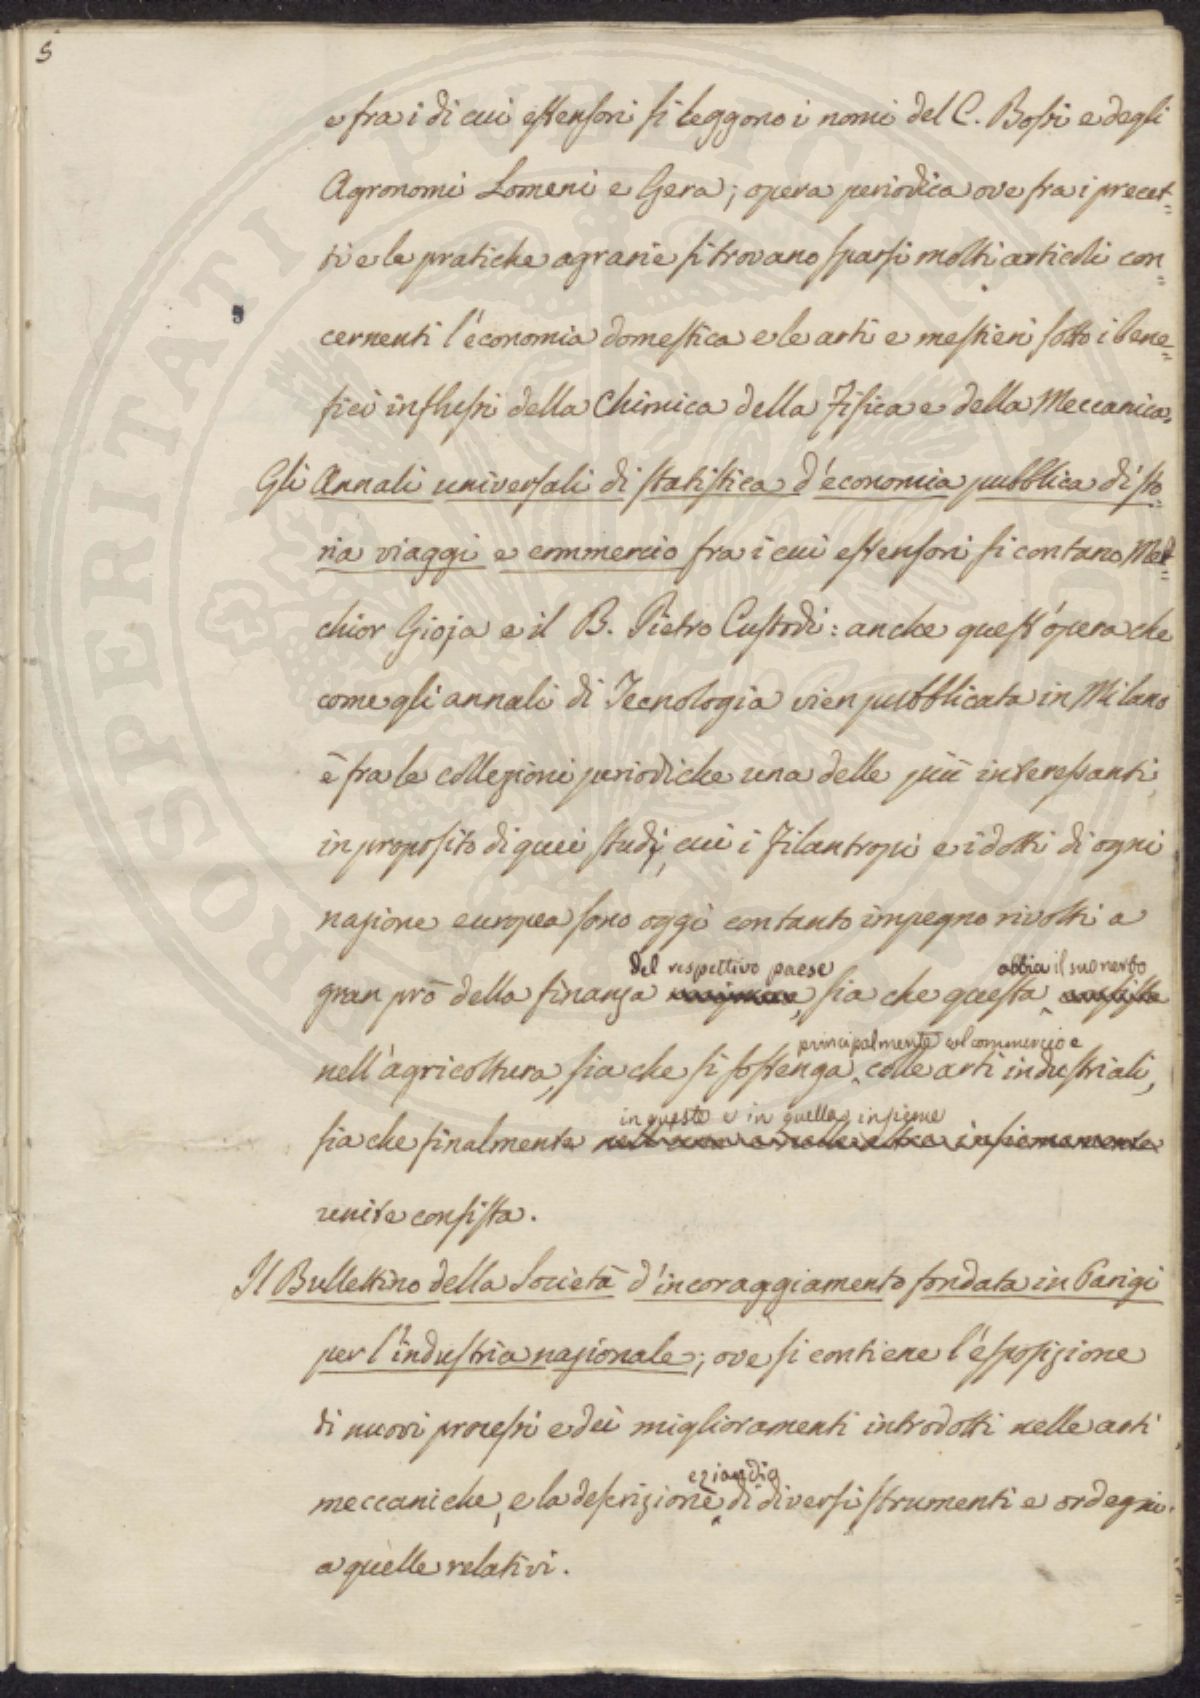 5
e fra i di cui estensori si leggono i nomi del C. Bossi e degli
Agronomi Lomeni e Gera; opera periodica ove fra i precet=
ti e le pratiche agrarie si trovano sparsi molti articoli con=
cernenti l'economia domestica e le arti e mestieri sotto i bene=
fici influssi della Chimica della Fisica e della Meccanica.
Gli Annali universali di statistica d'economia pubblica di sto=
ria viaggi e commercio fra i cui estensori si contano Mel=
chior Gioja e il B. Pietro Custodi: anche quest'opera che
come gli annali di Tecnologia vien pubblicata in Milano
è fra le collezioni periodiche una delle più interessanti,
in proposito di quei studj, cui i Filantropi e i dotti di ogni
nazione europea sono oggi con tanto impegno rivolti a
del respettivo paese abbia il suo nerbo
gran prò della finanza, sia che questa
principalmente col commercio e
nell'agricoltura, sia che si sostenga colle arti industriali,
in queste e in quella insieme
sia che finalmente nell'una e nelle altre insiememente
unite consista.
Il Bullettino della Società d'incoraggiamento fondata in Parigi
per l'industria nazionale; ove si contiene l'esposizione
di nuovi processi e dei miglioramenti introdotti nelle arti
eziandio
meccaniche, e la descrizione di diversi strumenti e ordegni
a quelle relativi.
PROSPERITATI PUBLICAE